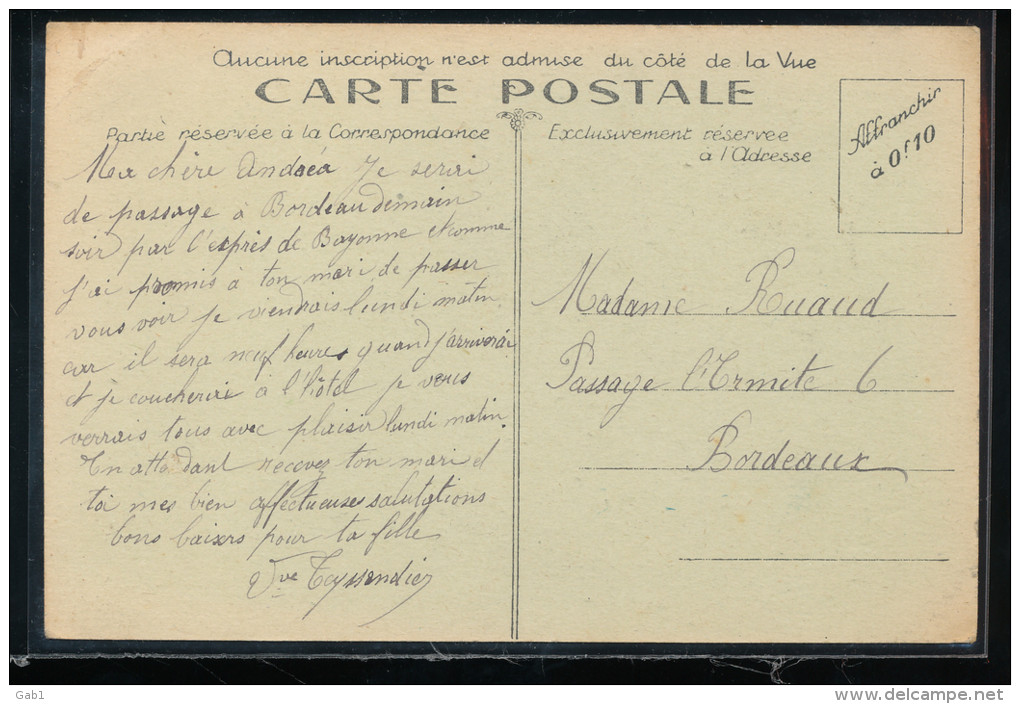 Aucune inscription n'est admise du côté de la Vue
CARTE POSTALE
Partie réservée à la Correspondance
Exclusivement réservée
à l'Adresse
Affranchir
à 0f10
Ma chère Andréa Je serai
de passage à Bordeau demain
soir par l'exprès de Bayonne et comme
j'ai promis à ton mari de passer
vous voir je viendrais lundi matin
car il sera neuf heures quand j'arriverái
et je coucherai à l'hôtel je vous
verrais tous avec plaisir lundi matin.
En attendant recevez ton mari et
toi mes bien affectueuses salutations
bons baisers pour ta fille
Vve Teyssendier
Madame Ruaud
Passage l'Ermite 6
Bordeaux
Gab1
www.delcampe.net